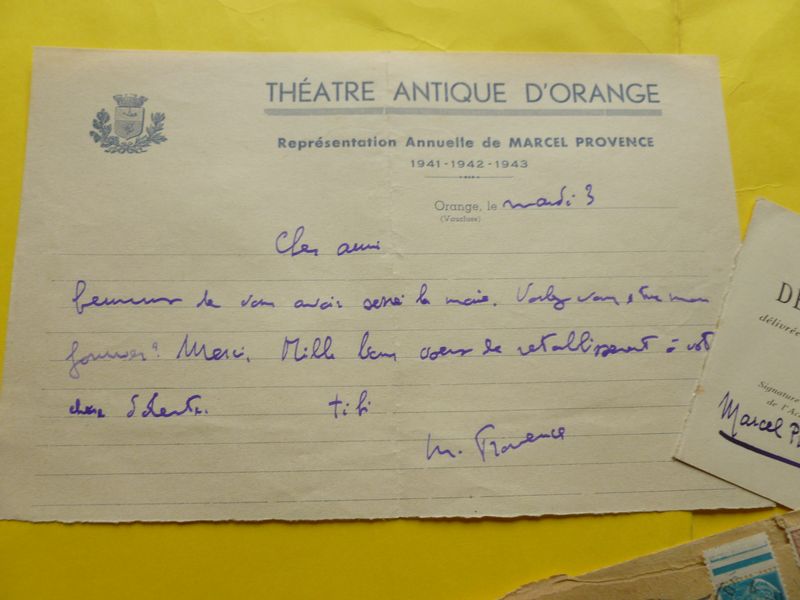 THÉATRE ANTIQUE D'ORANGE
Représentation Annuelle de MARCEL PROVENCE
1941-1942-1943
Orange, le mardi 3
(Vaucluse)
Cher ami
heureux de vous avoir serré la main. Voulez vous être mon
Merci. Mille bons voeux de rétablissement à vot
chère
tibi
M. Provence
DE
délivrée
Signature
de l'Ac
Marcel P